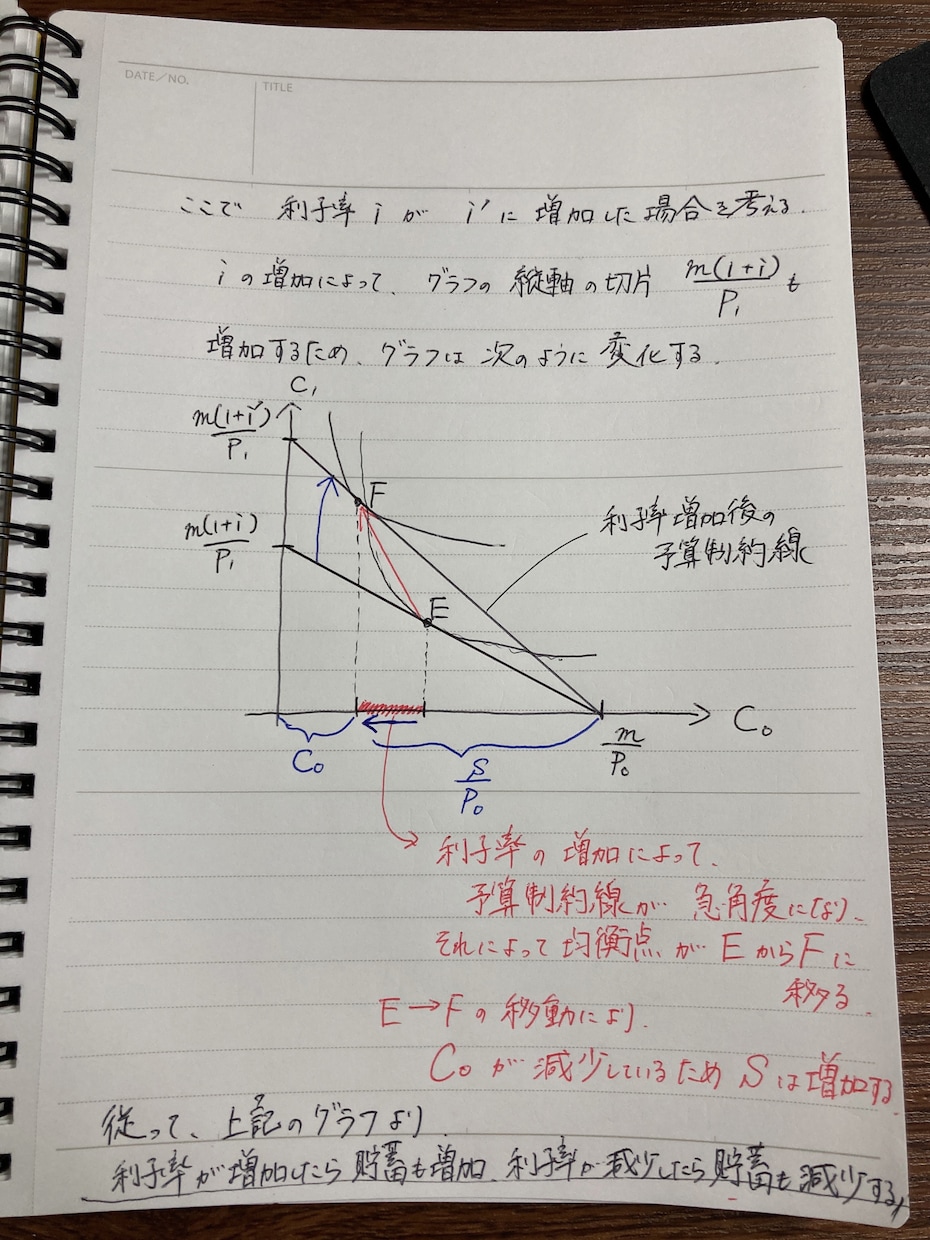 DATE/NO.
TITLE
ここで 利子率 i が i' に 増加した場合を考える.
i の増加によって、グラフの 縦軸の切片 m(1+i)/P₁ も
増加するため、グラフは 次のように 変化する.
C₁
m(1+i')/P₁
F
m(1+i)/P₁
利子率増加後の
予算制約線
E
C₀
m/P₀
C₀
S/P₀
利子率の増加によって、
予算制約線が 急角度になり、
それによって均衡点が EからFに
移る.
E→Fの移動により、
C₀が減少しているため Sは増加する.
従って、上記のグラフより、
利子率が増加したら貯蓄も増加、利子率が減少したら貯蓄も減少する//